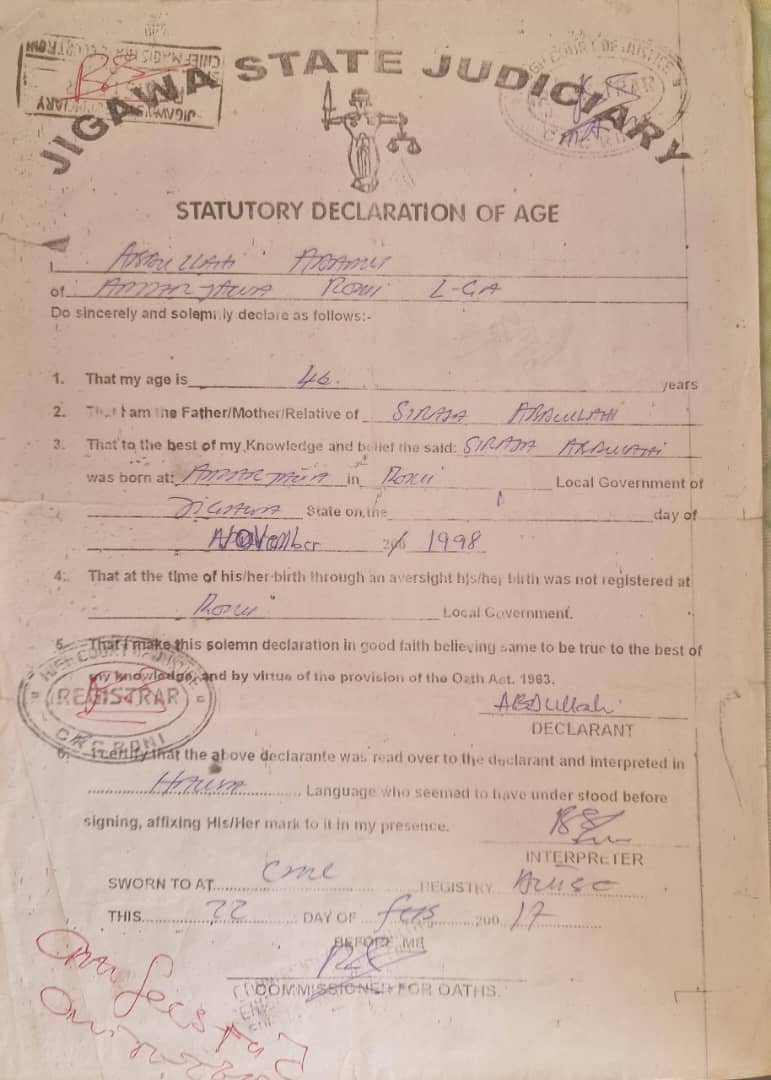 JIGAWA STATE JUDICIARY
STATUTORY DECLARATION OF AGE
I Abdullahi Adamu
of Amaryawa Roni L-GA
Do sincerely and solemnly declare as follows:-
1. That my age is 46. years
2. That I am the Father/Mother/Relative of SIRAJA ABDULLAHI
3. That to the best of my Knowledge and belief the said: SIRAJA ABDULLAHI
was born at: Amaryawa in Roni Local Government of
Jigawa State on the 1 day of
November 200 1998
4. That at the time of his/her birth through an aversight his/her birth was not registered at
Roni Local Government.
5. That I make this solemn declaration in good faith believing same to be true to the best of
my knowledge, and by virtue of the provision of the Oath Act. 1963.
HIGH COURT OF JUSTICE
REGISTRAR
CMC RONI
ABDullahi
DECLARANT
6. I certify that the above declarante was read over to the declarant and interpreted in
Hausa Language who seemed to have under stood before
signing, affixing His/Her mark to it in my presence.
INTERPRETER
SWORN TO AT CMC REGISTRY
THIS 22 DAY OF feb 200 17
BEFORE ME
COMMISSIONER FOR OATHS.